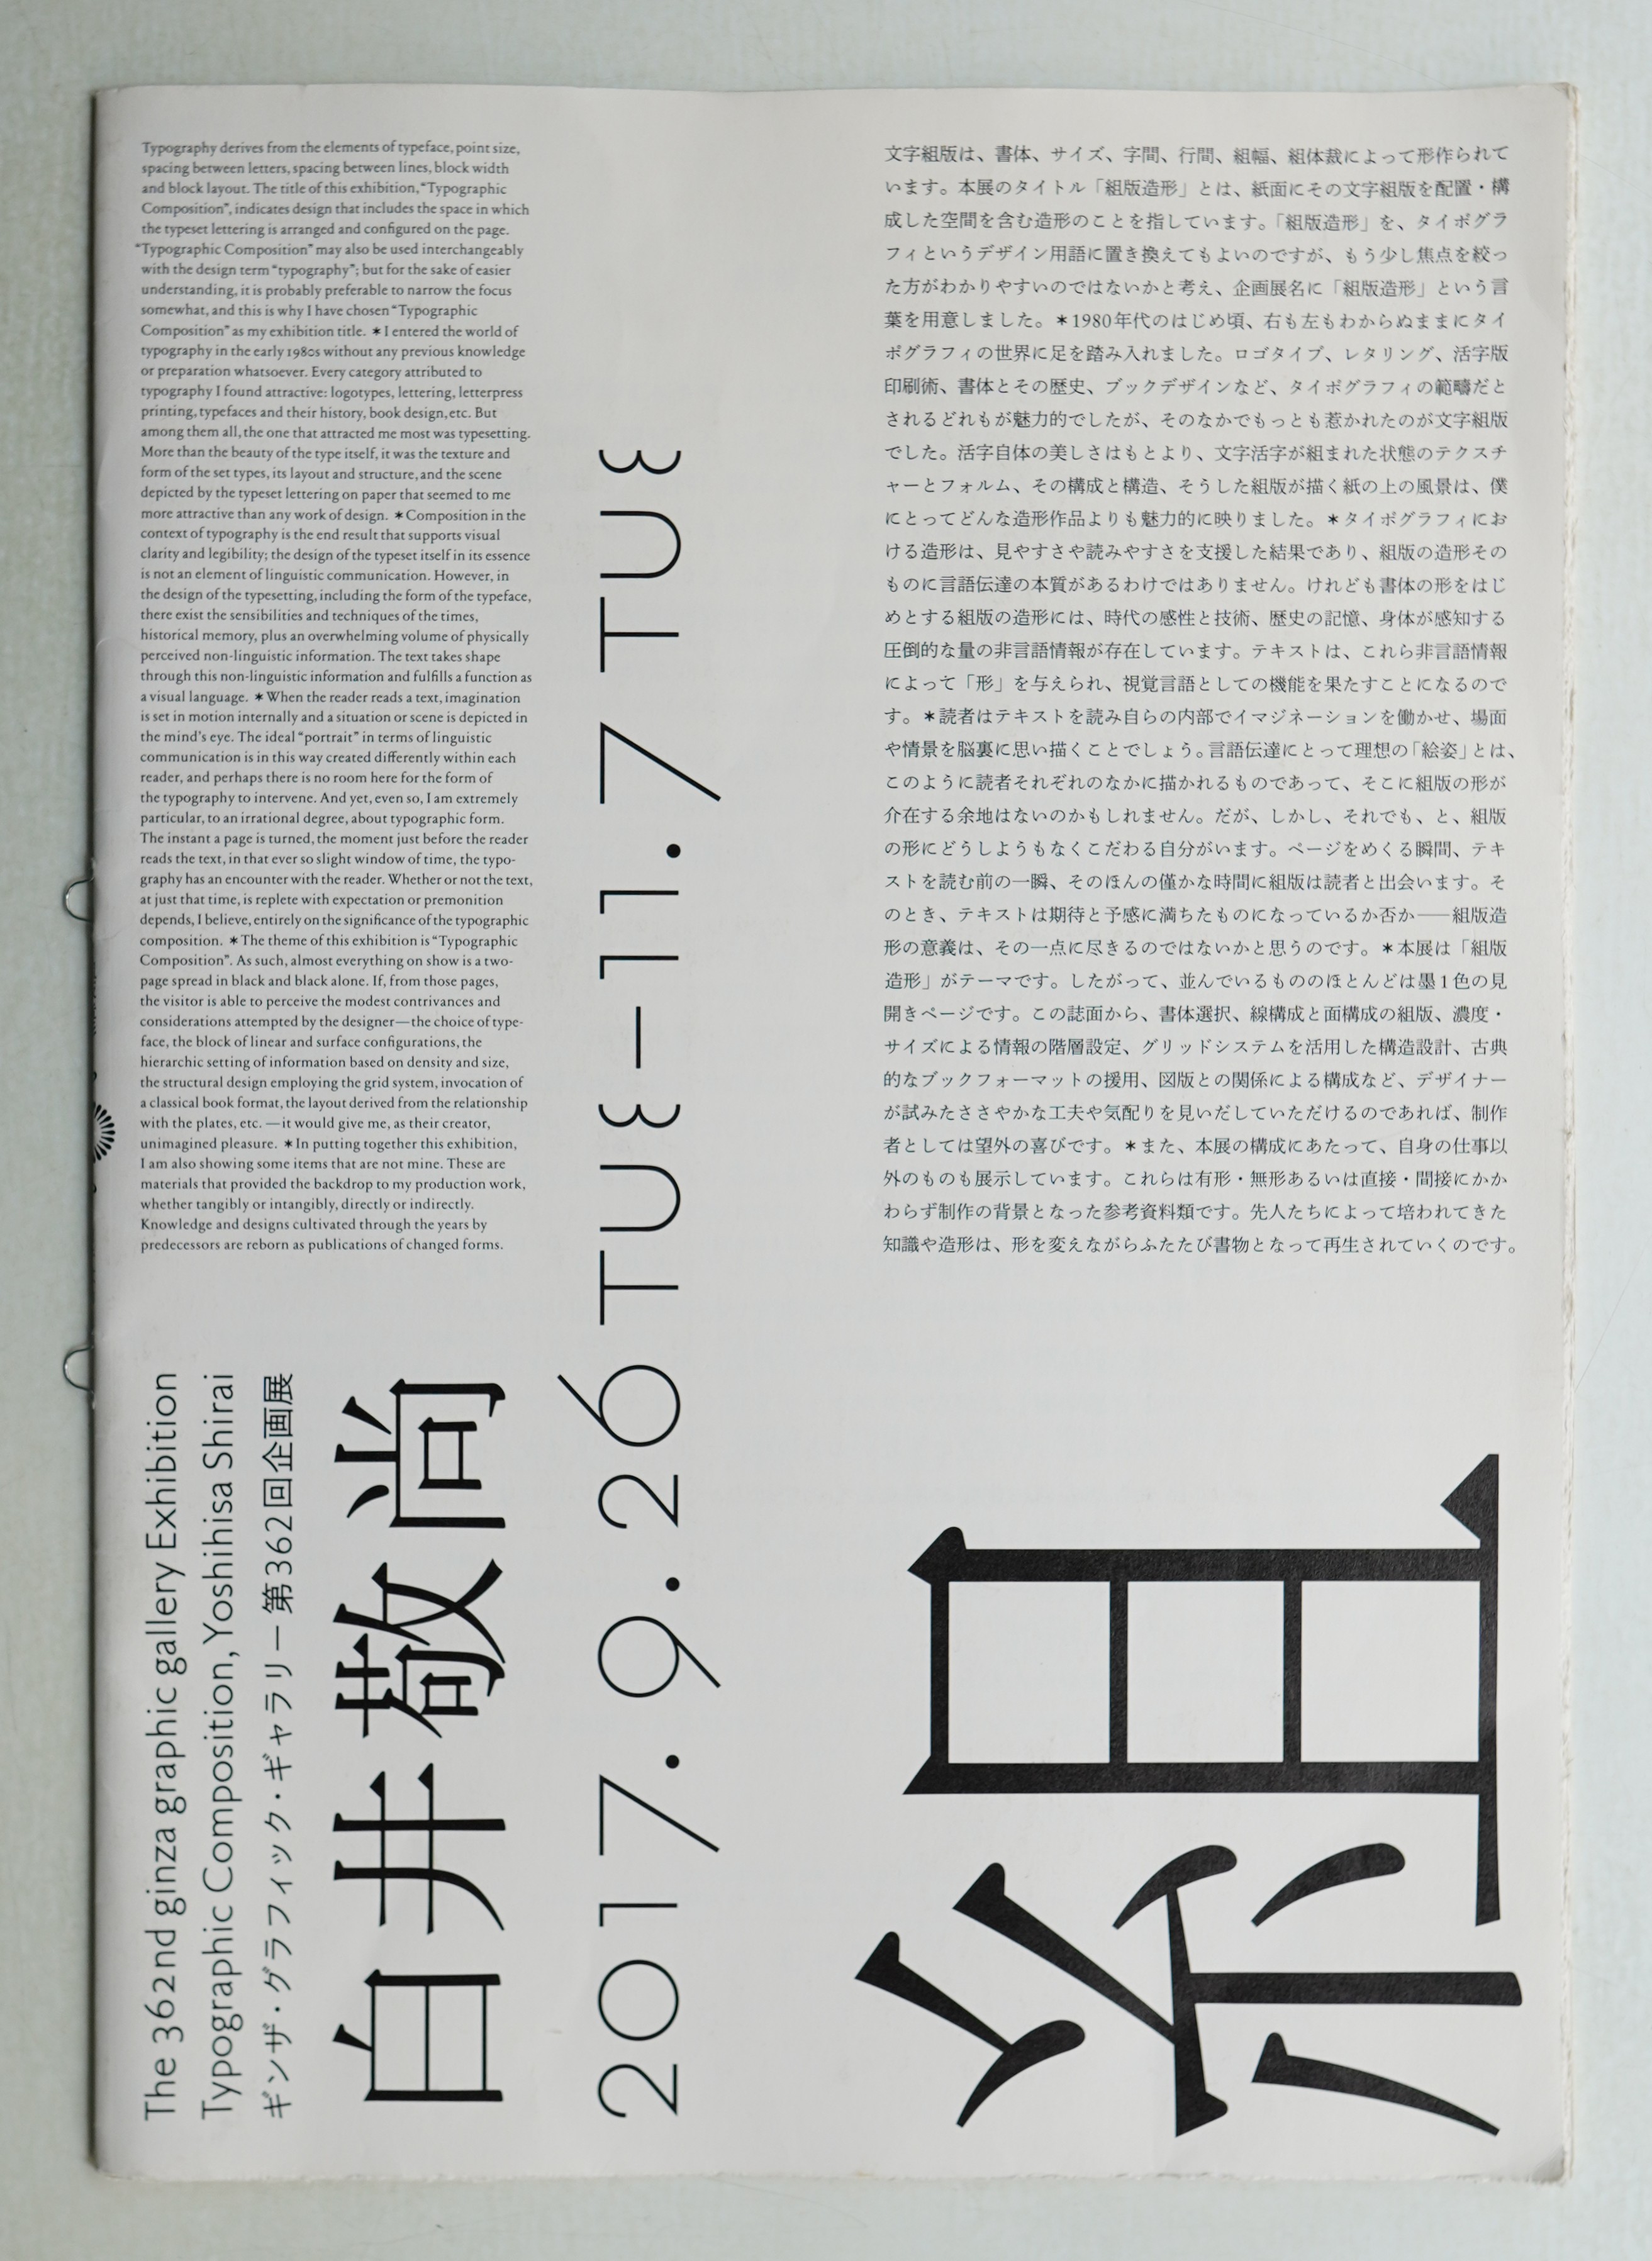 Typography derives from the elements of typeface, point size,
spacing between letters, spacing between lines, block width
and block layout. The title of this exhibition, “Typographic
Composition”, indicates design that includes the space in which
the typeset lettering is arranged and configured on the page.
“Typographic Composition” may also be used interchangeably
with the design term “typography”; but for the sake of easier
understanding, it is probably preferable to narrow the focus
somewhat, and this is why I have chosen “Typographic
Composition” as my exhibition title. ＊I entered the world of
typography in the early 1980s without any previous knowledge
or preparation whatsoever. Every category attributed to
typography I found attractive: logotypes, lettering, letterpress
printing, typefaces and their history, book design, etc. But
among them all, the one that attracted me most was typesetting.
More than the beauty of the type itself, it was the texture and
form of the set types, its layout and structure, and the scene
depicted by the typeset lettering on paper that seemed to me
more attractive than any work of design. ＊Composition in the
context of typography is the end result that supports visual
clarity and legibility; the design of the typeset itself in its essence
is not an element of linguistic communication. However, in
the design of the typesetting, including the form of the typeface,
there exist the sensibilities and techniques of the times,
historical memory, plus an overwhelming volume of physically
perceived non-linguistic information. The text takes shape
through this non-linguistic information and fulfills a function as
a visual language. ＊When the reader reads a text, imagination
is set in motion internally and a situation or scene is depicted in
the mind’s eye. The ideal “portrait” in terms of linguistic
communication is in this way created differently within each
reader, and perhaps there is no room here for the form of
the typography to intervene. And yet, even so, I am extremely
particular, to an irrational degree, about typographic form.
The instant a page is turned, the moment just before the reader
reads the text, in that ever so slight window of time, the typo-
graphy has an encounter with the reader. Whether or not the text,
at just that time, is replete with expectation or premonition
depends, I believe, entirely on the significance of the typographic
composition. ＊The theme of this exhibition is “Typographic
Composition”. As such, almost everything on show is a two-
page spread in black and black alone. If, from those pages,
the visitor is able to perceive the modest contrivances and
considerations attempted by the designer—the choice of type-
face, the block of linear and surface configurations, the
hierarchic setting of information based on density and size,
the structural design employing the grid system, invocation of
a classical book format, the layout derived from the relationship
with the plates, etc. —it would give me, as their creator,
unimagined pleasure. ＊In putting together this exhibition,
I am also showing some items that are not mine. These are
materials that provided the backdrop to my production work,
whether tangibly or intangibly, directly or indirectly.
Knowledge and designs cultivated through the years by
predecessors are reborn as publications of changed forms.
文字組版は、書体、サイズ、字間、行間、組幅、組体裁によって形作られて
います。本展のタイトル「組版造形」とは、紙面にその文字組版を配置・構
成した空間を含む造形のことを指しています。「組版造形」を、タイポグラ
フィというデザイン用語に置き換えてもよいのですが、もう少し焦点を絞っ
た方がわかりやすいのではないかと考え、企画展名に「組版造形」という言
葉を用意しました。＊1980年代のはじめ頃、右も左もわからぬままにタイ
ポグラフィの世界に足を踏み入れました。ロゴタイプ、レタリング、活字版
印刷術、書体とその歴史、ブックデザインなど、タイポグラフィの範疇だと
されるどれもが魅力的でしたが、そのなかでもっとも惹かれたのが文字組版
でした。活字自体の美しさはもとより、文字活字が組まれた状態のテクスチ
ャーとフォルム、その構成と構造、そうした組版が描く紙の上の風景は、僕
にとってどんな造形作品よりも魅力的に映りました。＊タイポグラフィにお
ける造形は、見やすさや読みやすさを支援した結果であり、組版の造形その
ものに言語伝達の本質があるわけではありません。けれども書体の形をはじ
めとする組版の造形には、時代の感性と技術、歴史の記憶、身体が感知する
圧倒的な量の非言語情報が存在しています。テキストは、これら非言語情報
によって「形」を与えられ、視覚言語としての機能を果たすことになるので
す。＊読者はテキストを読み自らの内部でイマジネーションを働かせ、場面
や情景を脳裏に思い描くことでしょう。言語伝達にとって理想の「絵姿」とは、
このように読者それぞれのなかに描かれるものであって、そこに組版の形が
介在する余地はないのかもしれません。だが、しかし、それでも、と、組版
の形にどうしようもなくこだわる自分がいます。ページをめくる瞬間、テキ
ストを読む前の一瞬、そのほんの僅かな時間に組版は読者と出会います。そ
のとき、テキストは期待と予感に満ちたものになっているか否か――組版造
形の意義は、その一点に尽きるのではないかと思うのです。＊本展は「組版
造形」がテーマです。したがって、並んでいるもののほとんどは墨1色の見
開きページです。この誌面から、書体選択、線構成と面構成の組版、濃度・
サイズによる情報の階層設定、グリッドシステムを活用した構造設計、古典
的なブックフォーマットの援用、図版との関係による構成など、デザイナー
が試みたささやかな工夫や気配りを見いだしていただけるのであれば、制作
者としては望外の喜びです。＊また、本展の構成にあたって、自身の仕事以
外のものも展示しています。これらは有形・無形あるいは直接・間接にかか
わらず制作の背景となった参考資料類です。先人たちによって培われてきた
知識や造形は、形を変えながらふたたび書物となって再生されていくのです。
The 362nd ginza graphic gallery Exhibition
Typographic Composition, Yoshihisa Shirai
ギンザ・グラフィック・ギャラリー 第362回企画展
白井敬尚
2017.9.26TUE–11.7 TUE
組